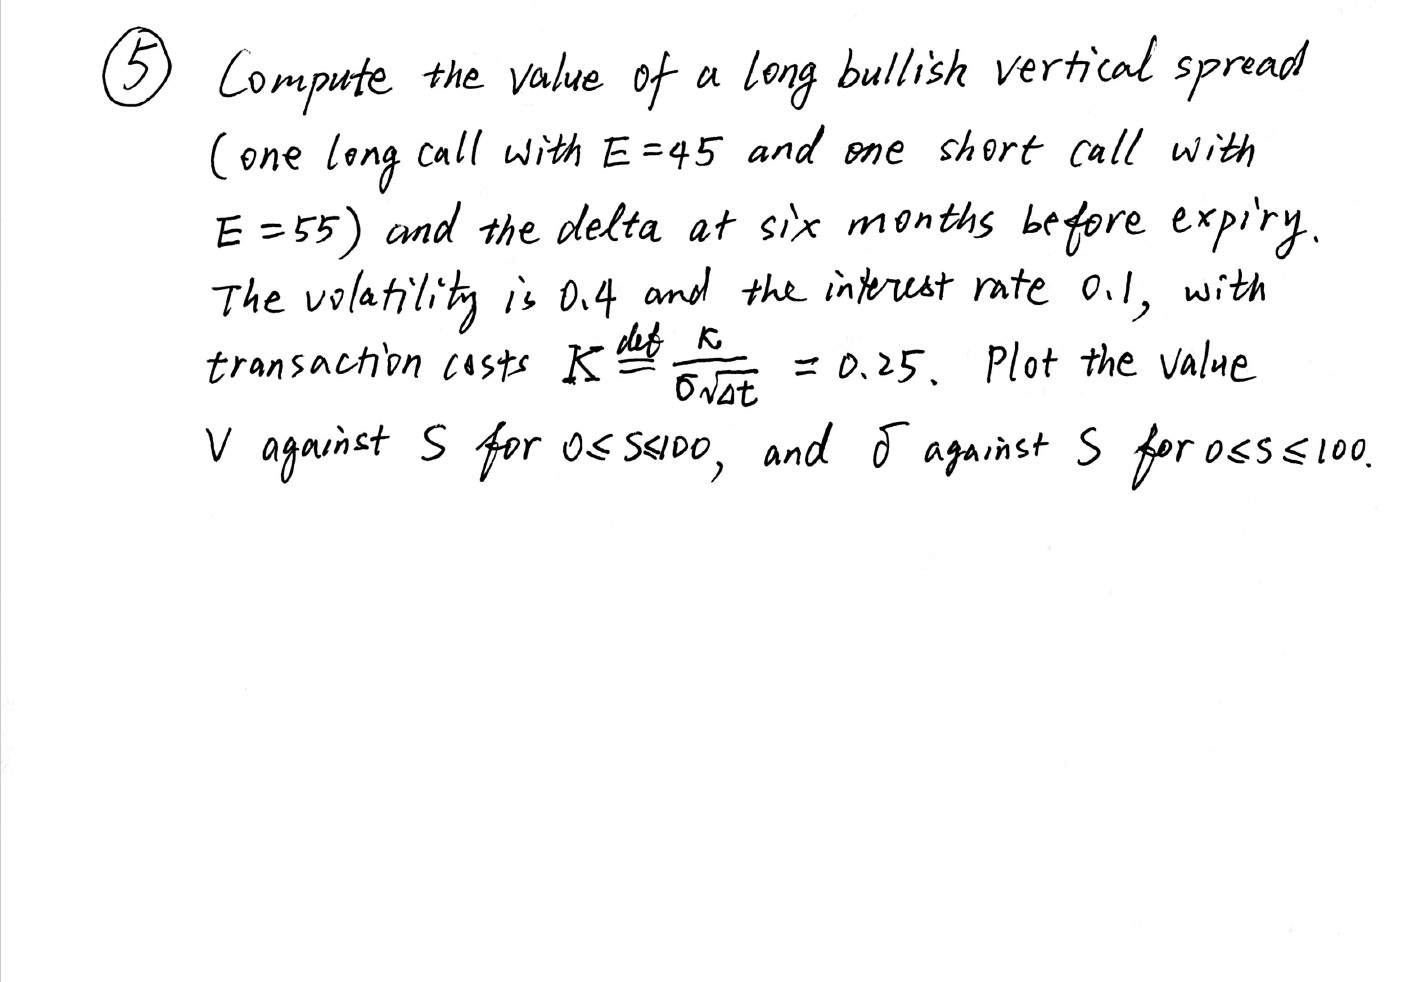 ⑤ Compute the value of a long bullish vertical spread
(one long call with E=45 and one short call with
E=55) and the delta at six months before expiry.
The volatility is 0.4 and the interest rate 0.1, with
transaction costs K \stackrel{def}{=} \frac{κ}{σ√Δt} = 0.25. Plot the value
V against S for 0≤S≤100, and δ against S for 0≤S≤100.